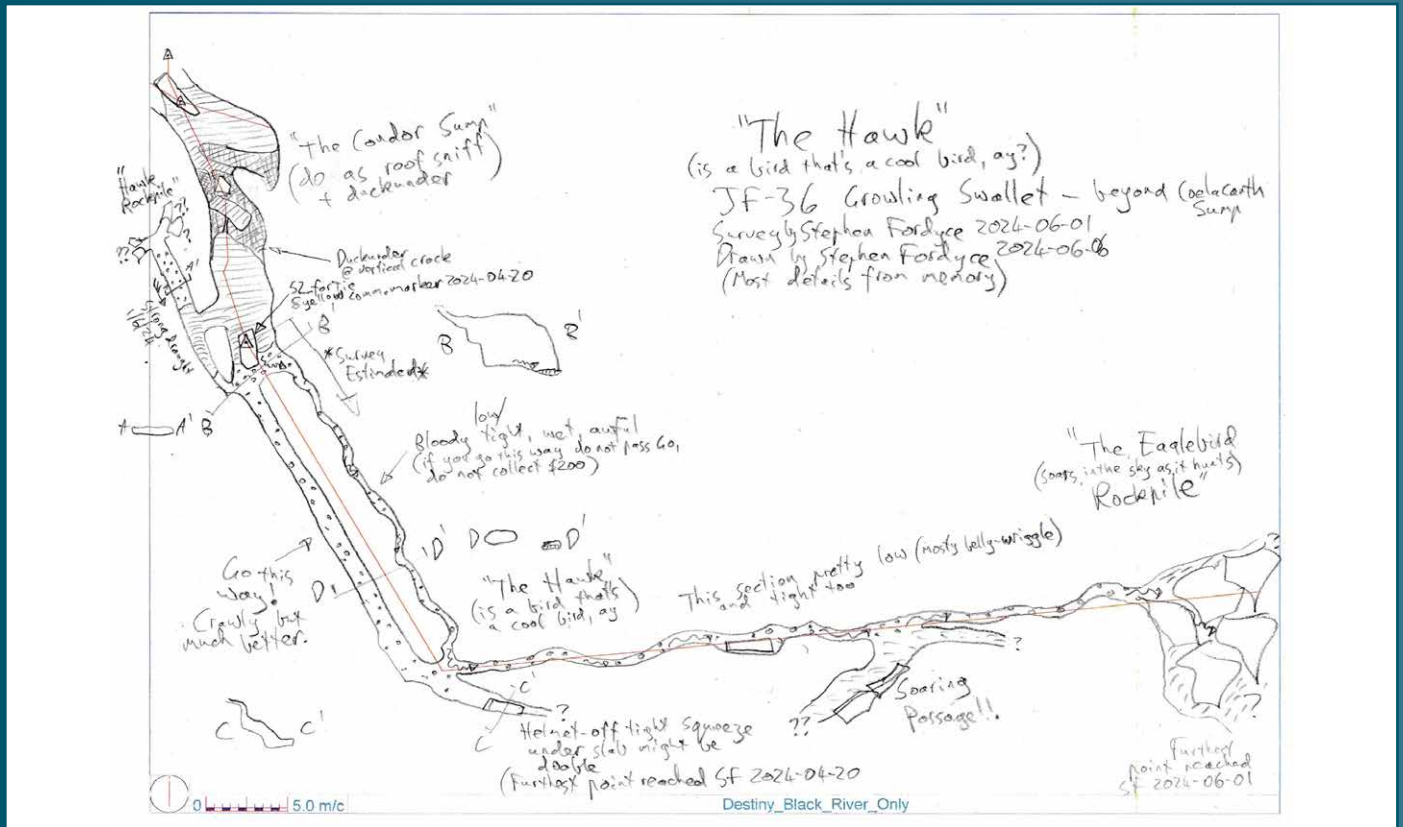 "The Condor Sump"
(do as roof sniff
+ duckunder)
"Hawk
Rockpile"
??
??
A'
A
Strong draught
1/6/24
Duckunder
@ vertical crack
SZ_fortie
& yellow comm. marker 2024-04-20
B
B'
*Survey
Estimated*
B
B'
A A'
"The Hawk"
(is a bird that's a cool bird, ay?)
JF-36 Growling Swallet - beyond Coelacanth
Sump
Survey by Stephen Fordyce 2024-06-01
Drawn by Stephen Fordyce 2024-06-06
(Most details from memory)
low/
Bloody tight, wet, awful
(if you go this way do not pass Go,
do not collect $200)
"The Eaglebird
(soars in the sky as it hunts)
Rockpile"
Go this
way!
Crawly but
much better.
D'
D
D D'
"The Hawk"
(is a bird that's
a cool bird, ay)
This section pretty low (mosty belly-wriggle)
and tight too
C C'
C'
C
?
Helmet-off tight squeeze
under slab might be
doable
(Furthest point reached SF 2024-04-20
??
?
Soaring
Passage!!
?
?
Furthest
point reached
SF 2024-06-01
0 5.0 m/c
Destiny_Black_River_Only